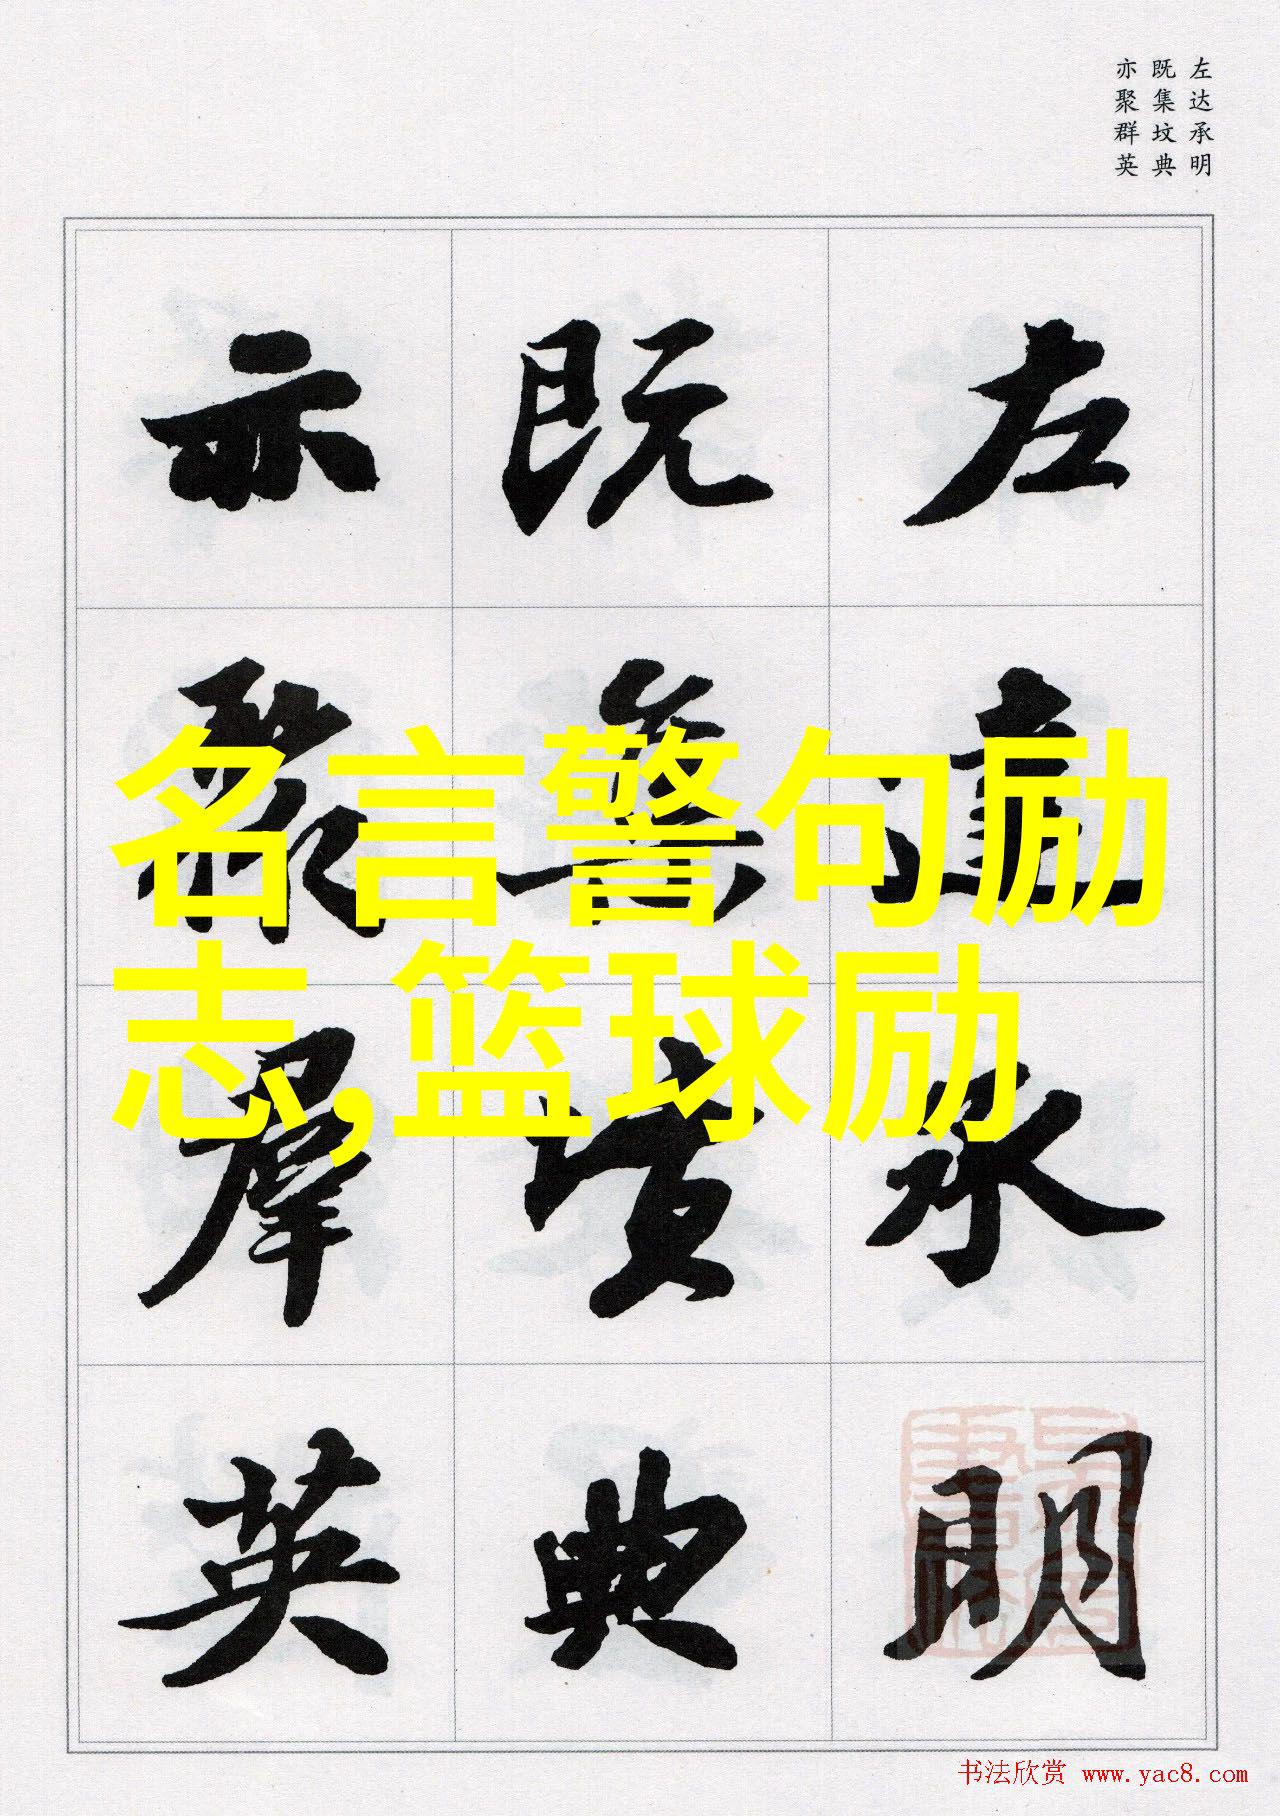 左达承明
既集坟典
亦聚群英
左达承明
既集坟典
亦聚群英
名言警句励
志,篮球励
书法欣赏 www.yac8.com